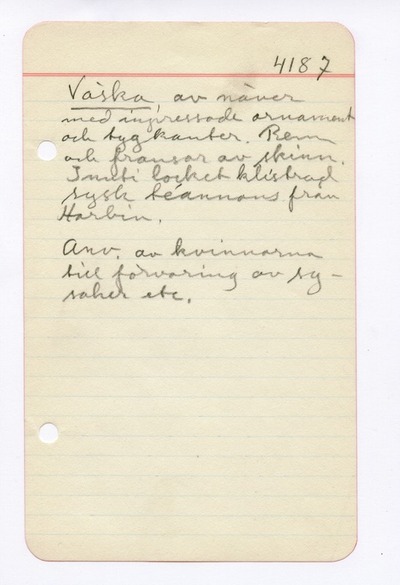 4187
Väska, av näver
med inpressade ornament
och tygkanter. Rem
och fransar av skinn.
Inuti locket klistrad
rysk téannons från
Harbin.
Anv. av kvinnorna
till förvaring av sy-
saker etc.